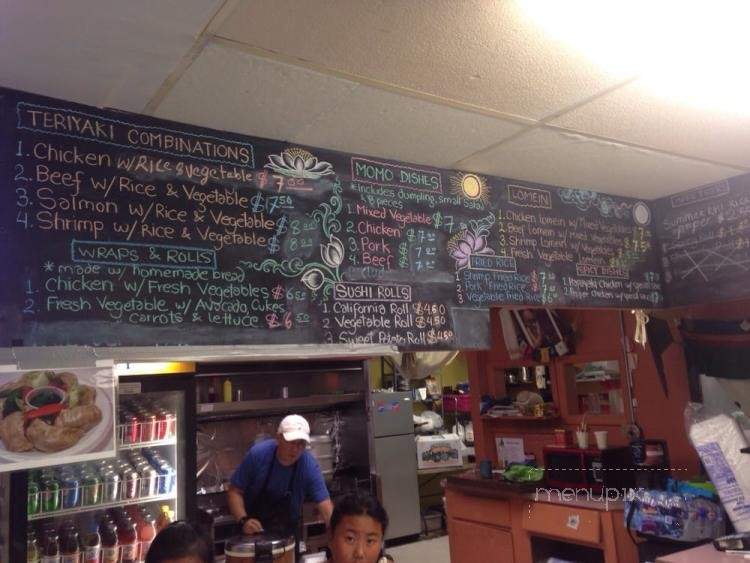 TERIYAKI COMBINATIONS
1. Chicken w/Rice & Vegetable $7.00
2. Beef w/Rice & Vegetable $7.50
3. Salmon w/Rice & Vegetable $8.00
4. Shrimp w/Rice & Vegetable $8.00
WRAPS & ROLLS
* made w/ homemade bread
1. Chicken w/Fresh Vegetables $6.50
2. Fresh Vegetable w/ Avocado, Cukes
carrots & lettuce $6
MOMO DISHES
*includes dumpling, small salad
& 8 pieces
1. Mixed Vegetable $7
2. Chicken $7
3. Pork $7
4. Beef $7
SUSHI ROLLS
1. California Roll $4.50
2. Vegetable Roll $4.50
3. Sweet Potato Roll $4.50
LOMEIN
1. Chicken Lomein w/Mixed Vegetables
2. Beef Lomein w/
3. Shrimp Lomein w/
4. Fresh Vegetable Lomein
FRIED RICE
1. Shrimp Fried Rice $7
2. Pork Fried Rice $7
3. Vegetable Fried Rice $6
SPICY DISHES
Chicken w/special
chicken w/special
Summer
menupix